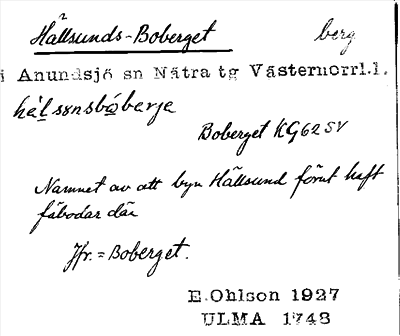 Hällsunds-Boberget berg
i Anundsjö sn Nätra tg Västernorrl.l.
hälsʏnsbóberje
Boberget KG62SV
Namnet av att byn Hällsund förut haft
fäbodar där
Jfr. = Boberget.
E.Ohlson 1927
ULMA 1743